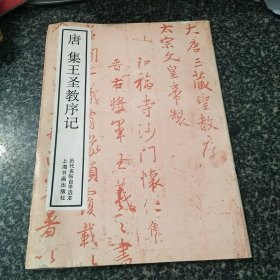 唐 集王圣教序记
历代名帖自学选本
上海书画出版社
大唐三藏聖教序
太宗文皇帝製
弘福寺沙門懷仁集
晉右將軍王羲之書
二儀有像顯覆載以